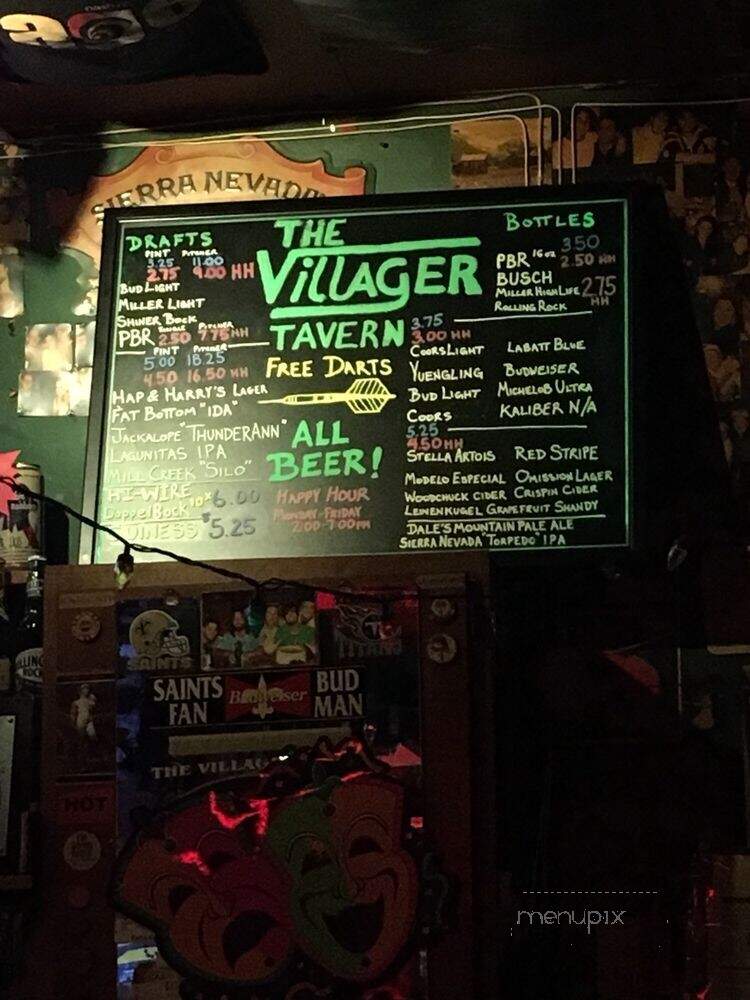 SIERRA NEVADA
DRAFTS
PINT PITCHER
3.25 11.00
2.75 9.00 HH
BUD LIGHT
MILLER LIGHT
SHINER BOCK
PBR 2.50 PITCHER 7.75 HH
PINT PITCHER
5.00 18.25
4.50 16.50 HH
HAP & HARRY'S LAGER
FAT BOTTOM "IDA"
JACKALOPE "THUNDERANN"
LAGUNITAS IPA
MILL CREEK "SILO"
HI-WIRE
DOPPELBOCK 10% 6.00
GUINESS $5.25
THE
VILLAGER
TAVERN
FREE DARTS
ALL
BEER!
HAPPY HOUR
MONDAY-FRIDAY
2:00-7:00PM
BOTTLES
3.50
PBR 16oz 2.50 HH
BUSCH
MILLER HIGH LIFE 2.75
HH
ROLLING ROCK
3.75
3.00 HH
COORS LIGHT LABATT BLUE
YUENGLING BUDWEISER
BUD LIGHT MICHELOB ULTRA
COORS KALIBER N/A
5.25
4.50 HH
STELLA ARTOIS RED STRIPE
MODELO ESPECIAL OMISSION LAGER
WOODCHUCK CIDER CRISPIN CIDER
LEINENKUGEL GRAPEFRUIT SHANDY
DALE'S MOUNTAIN PALE ALE
SIERRA NEVADA "TORPEDO" IPA
SAINTS
TITANS
SAINTS FAN
Budweiser
BUD MAN
THE VILLAG
HOT
menupix